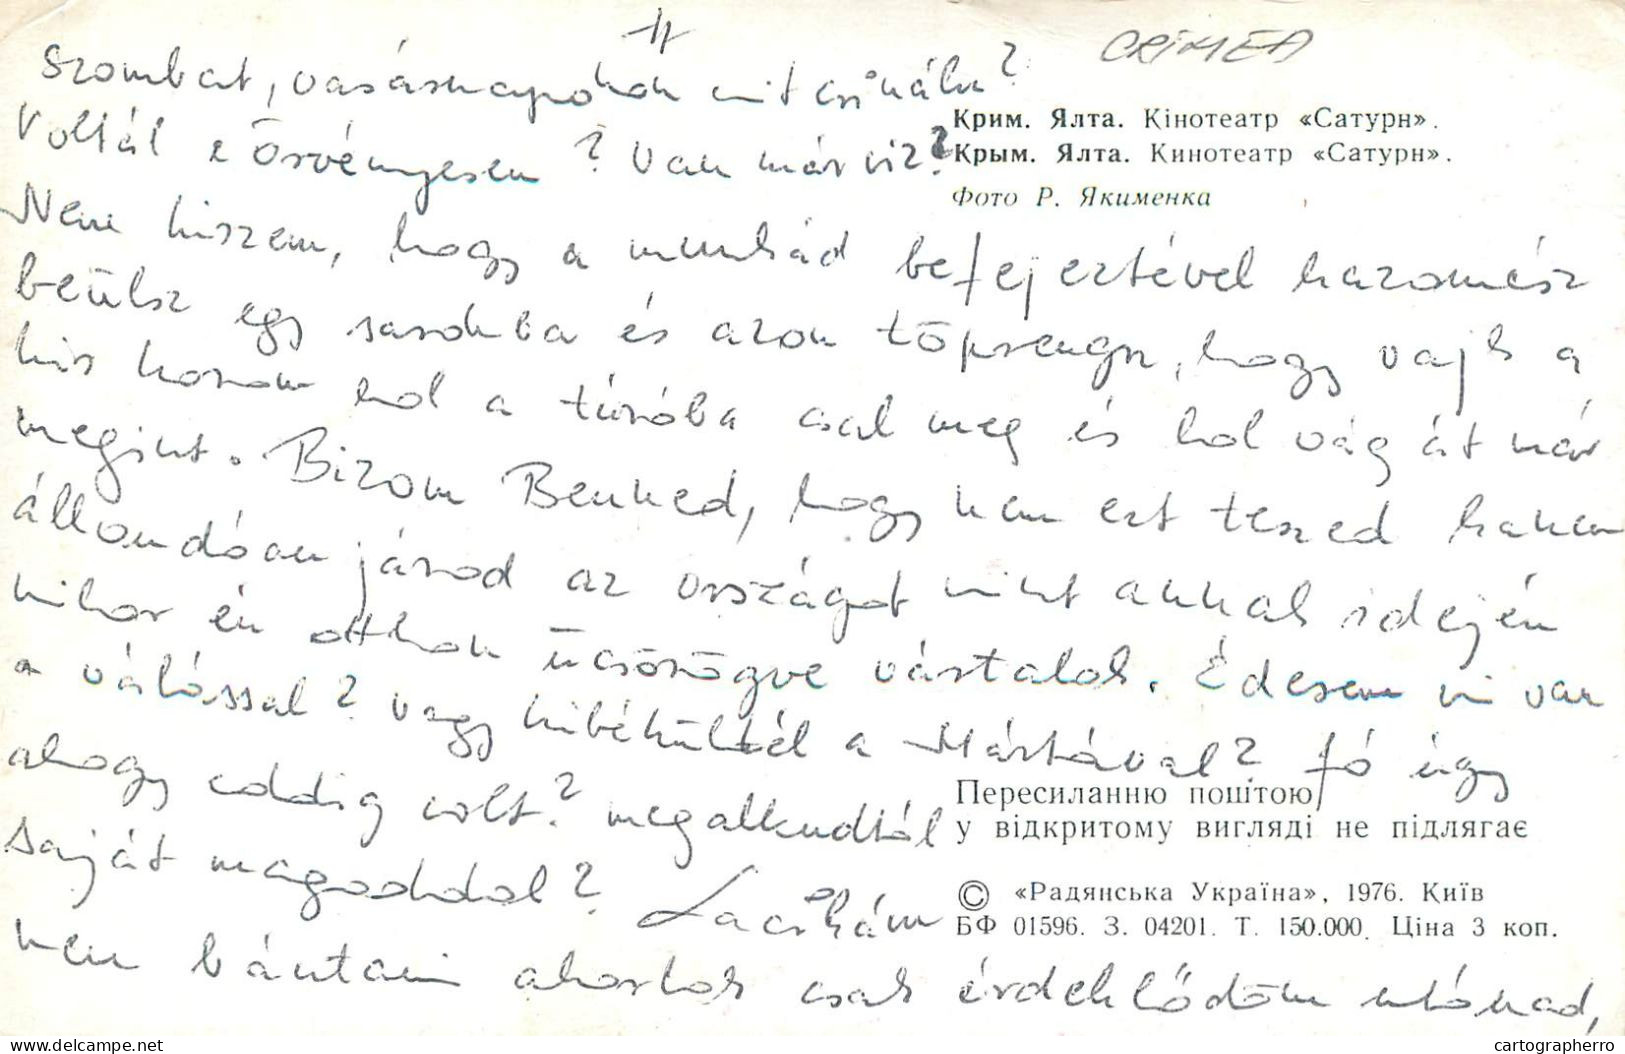 11
CRIMEA
Szombat, vasárnapokon mit csinálsz?
Voltál e Örvényesen? Van már viz?
Крим. Ялта. Кінотеатр «Сатурн».
Крым. Ялта. Кинотеатр «Сатурн».
Фото Р. Якименка
Nem hiszem, hogy a munkád befejeztével hazamész
beülsz egy sarokba és azon töprengsz, hogy vajk a
kis hol a túróba csal meg és hol vág át már
megint. Bizom Benned, hogy nem ezt teszed hanem
állandóan járod az országot mint annak idején
mikor én otthon ücsörögve vártalak. Édesem mi van
a válással? vagy kibékültél a Mártával? Jó úgy
ahogy eddig volt? megalkudtál
saját magaddal? Lacikám
nem bántani akarlak csak érdeklődöm utánad,
Пересиланню поштою
у відкритому вигляді не підлягає
© «Радянська Україна», 1976. Київ
БФ 01596. З. 04201. Т. 150.000. Ціна 3 коп.
hippostcard.com
cartographerro